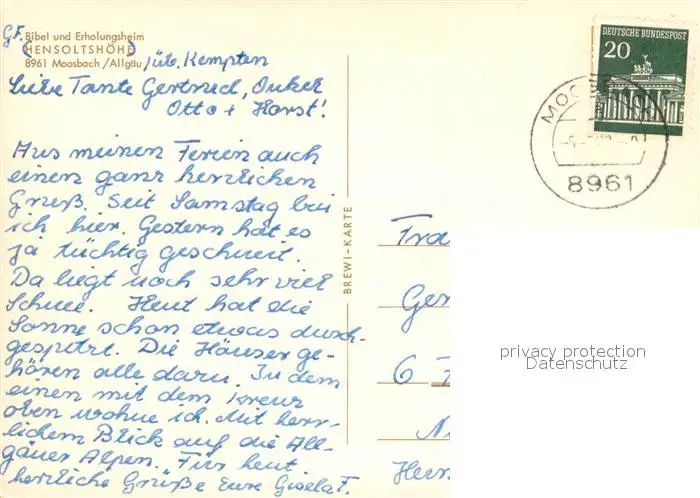 G.F.
Bibel und Erholungsheim
HENSOLTSHÖHE
8961 Moosbach/Allgäu, üb. Kempten
Liebe Tante Gertrud, Onkel
Otto + Horst!
Aus meinen Ferien auch
einen ganz herzlichen
Gruß. Seit Samstag bin
ich hier. Gestern hat es
ja tüchtig geschneit.
Da liegt noch sehr viel
Schnee. Heut hat die
Sonne schon etwas durch-
gespitzt. Die Häuser ge-
hören alle dazu. In dem
einen mit dem Kreuz
oben wohne ich. Mit herr-
lichem Blick auf die All-
gäuer Alpen. Für heut
herzliche Grüße Eure Gisela F.
BREWI-KARTE
DEUTSCHE BUNDESPOST
20
8961
Fra
Ger
6
privacy protection
Datenschutz